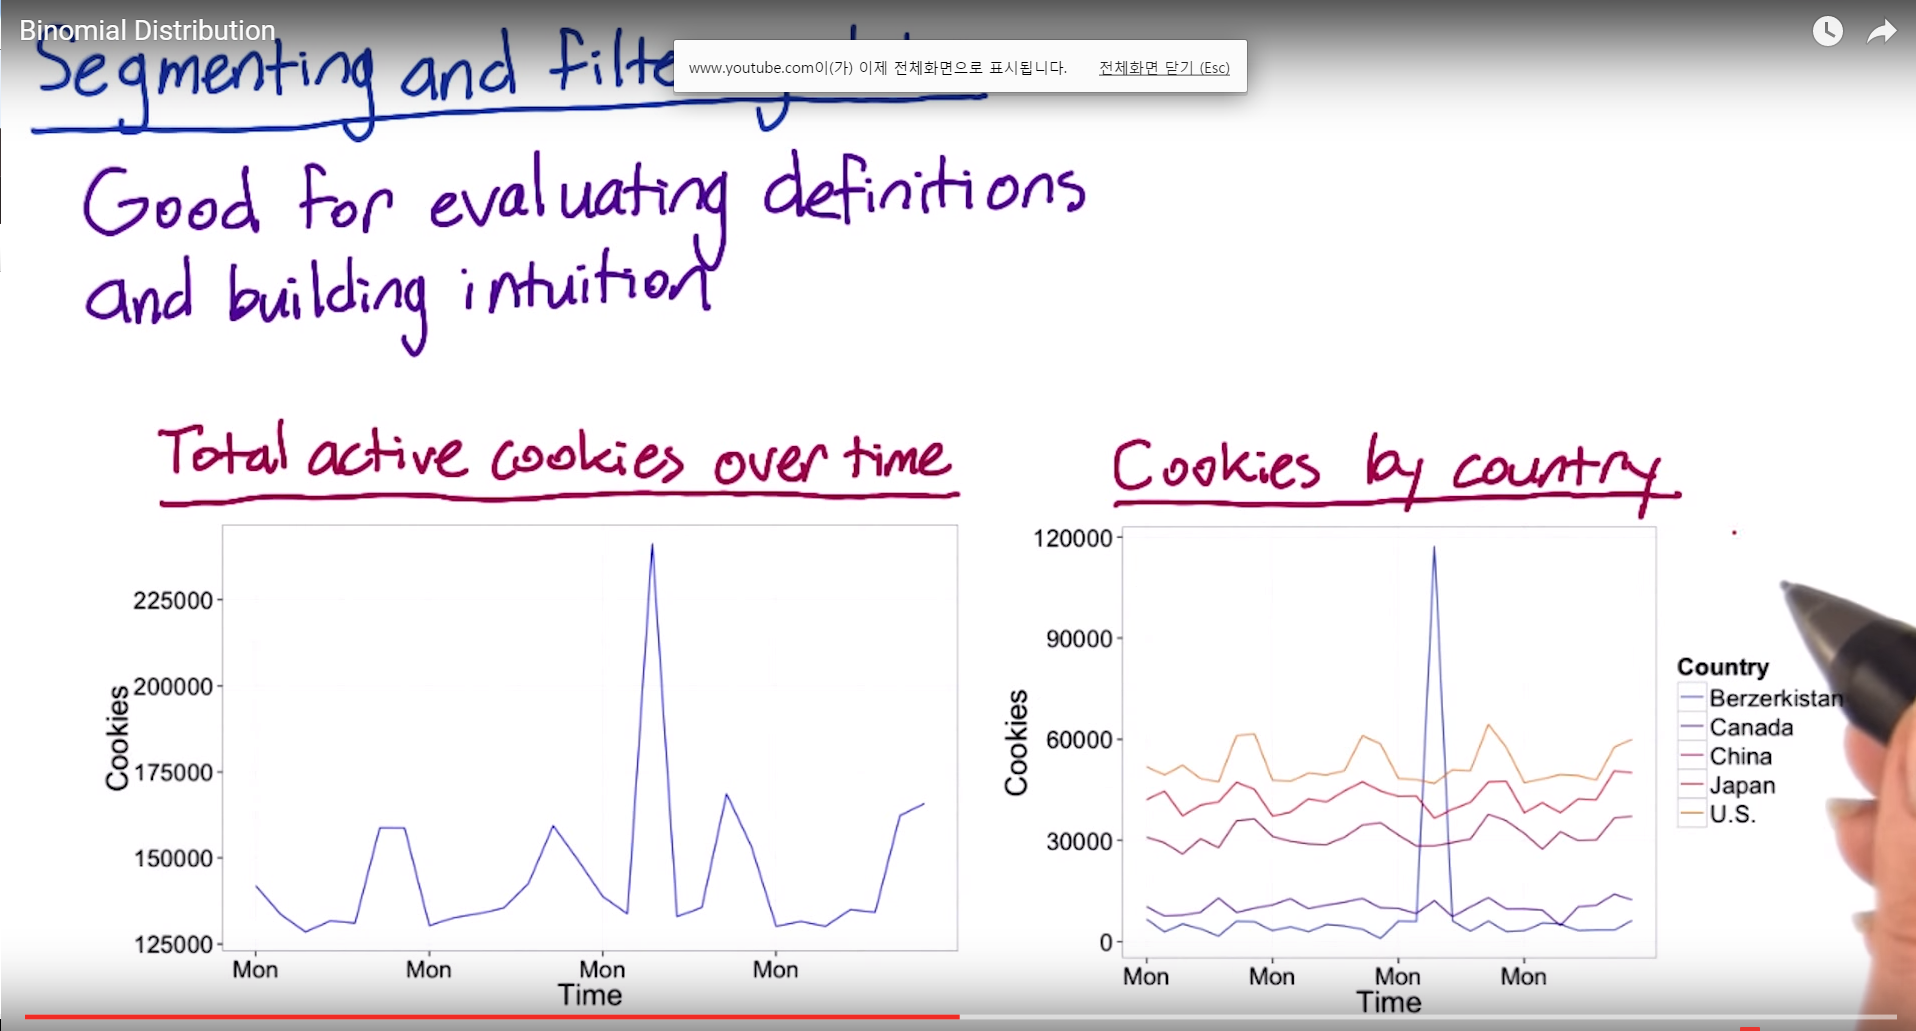 Binomial Distribution
Segmenting and
www.youtube.com이(가) 이제 전체화면으로 표시됩니다. 전체화면 닫기 (Esc)
Good for evaluating definitions
and building intuition
Total active cookies over time
225000
200000
175000
150000
125000
Cookies
Mon Mon Mon Mon
Time
Cookies by country
120000
90000
60000
30000
0
Cookies
Mon Mon Mon Mon
Time
Country
Berzerkistan
Canada
China
Japan
U.S.